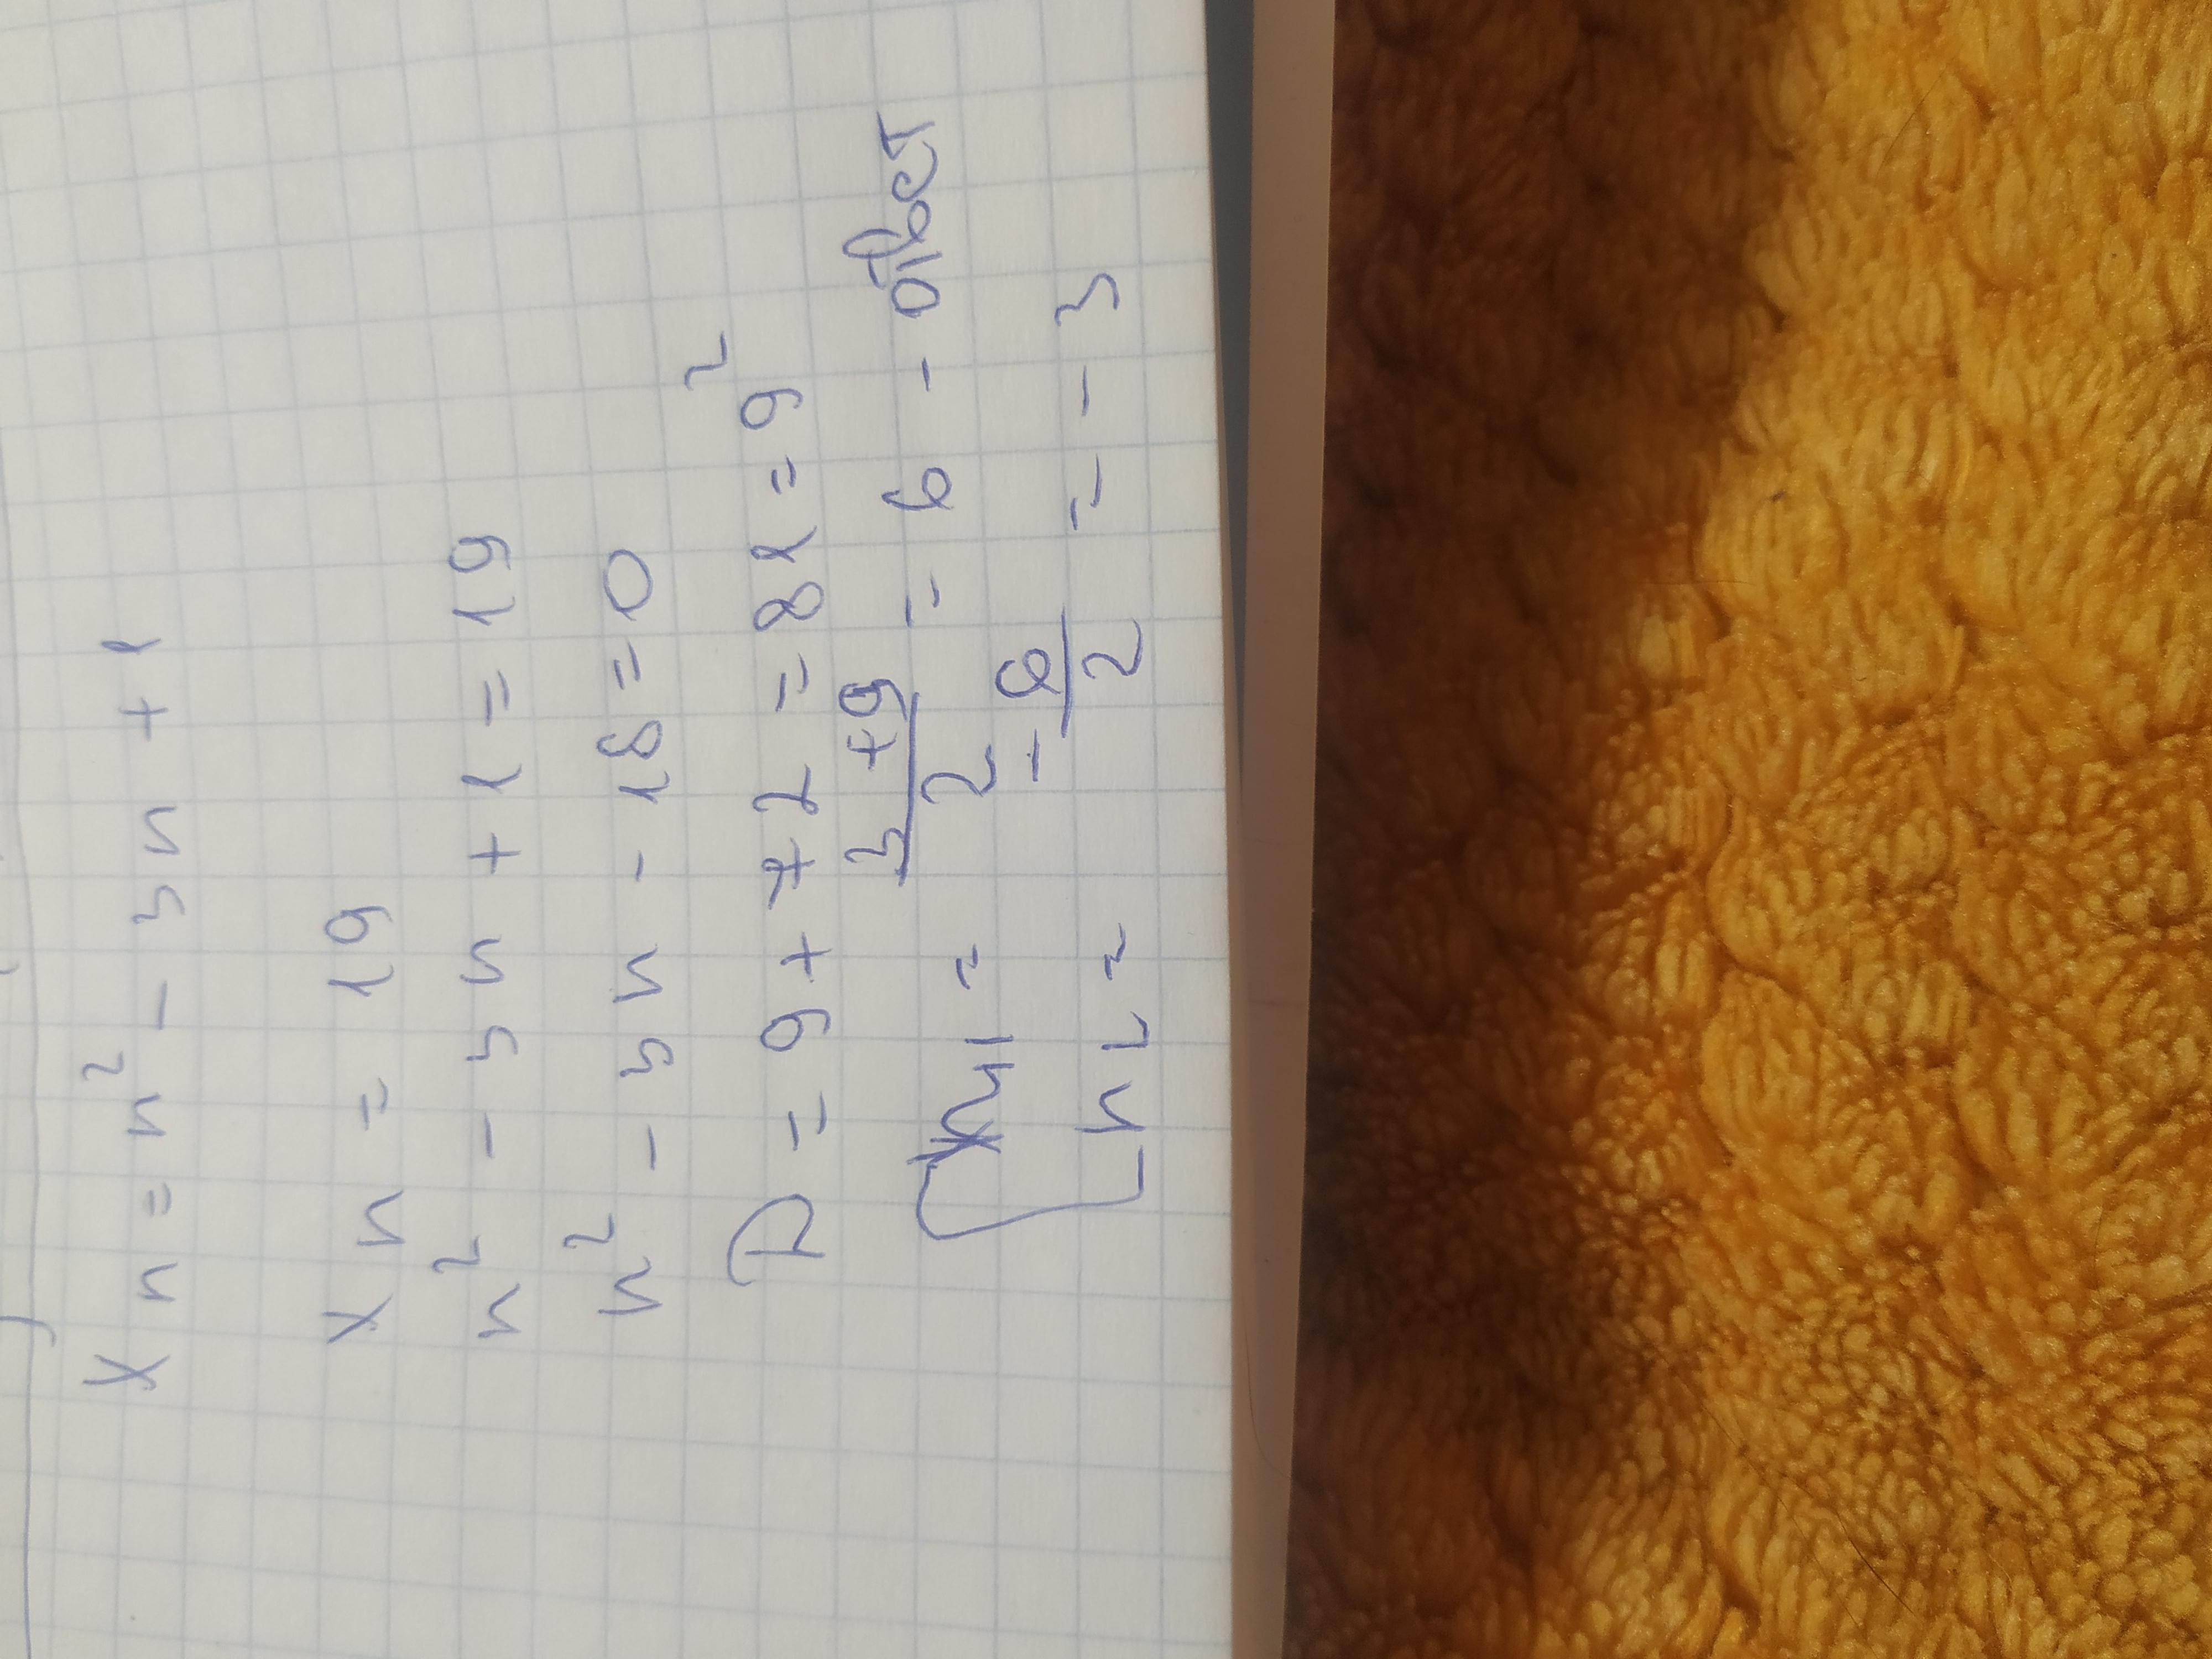 x n = n² - 3n + 1
x n = 19
n² - 3n + 1 = 19
n² - 3n - 18 = 0
D = 9 + 72 = 81 = 9²
n1 = 3+9/2 = 6 - ответ
n2 = -6/2 = -3